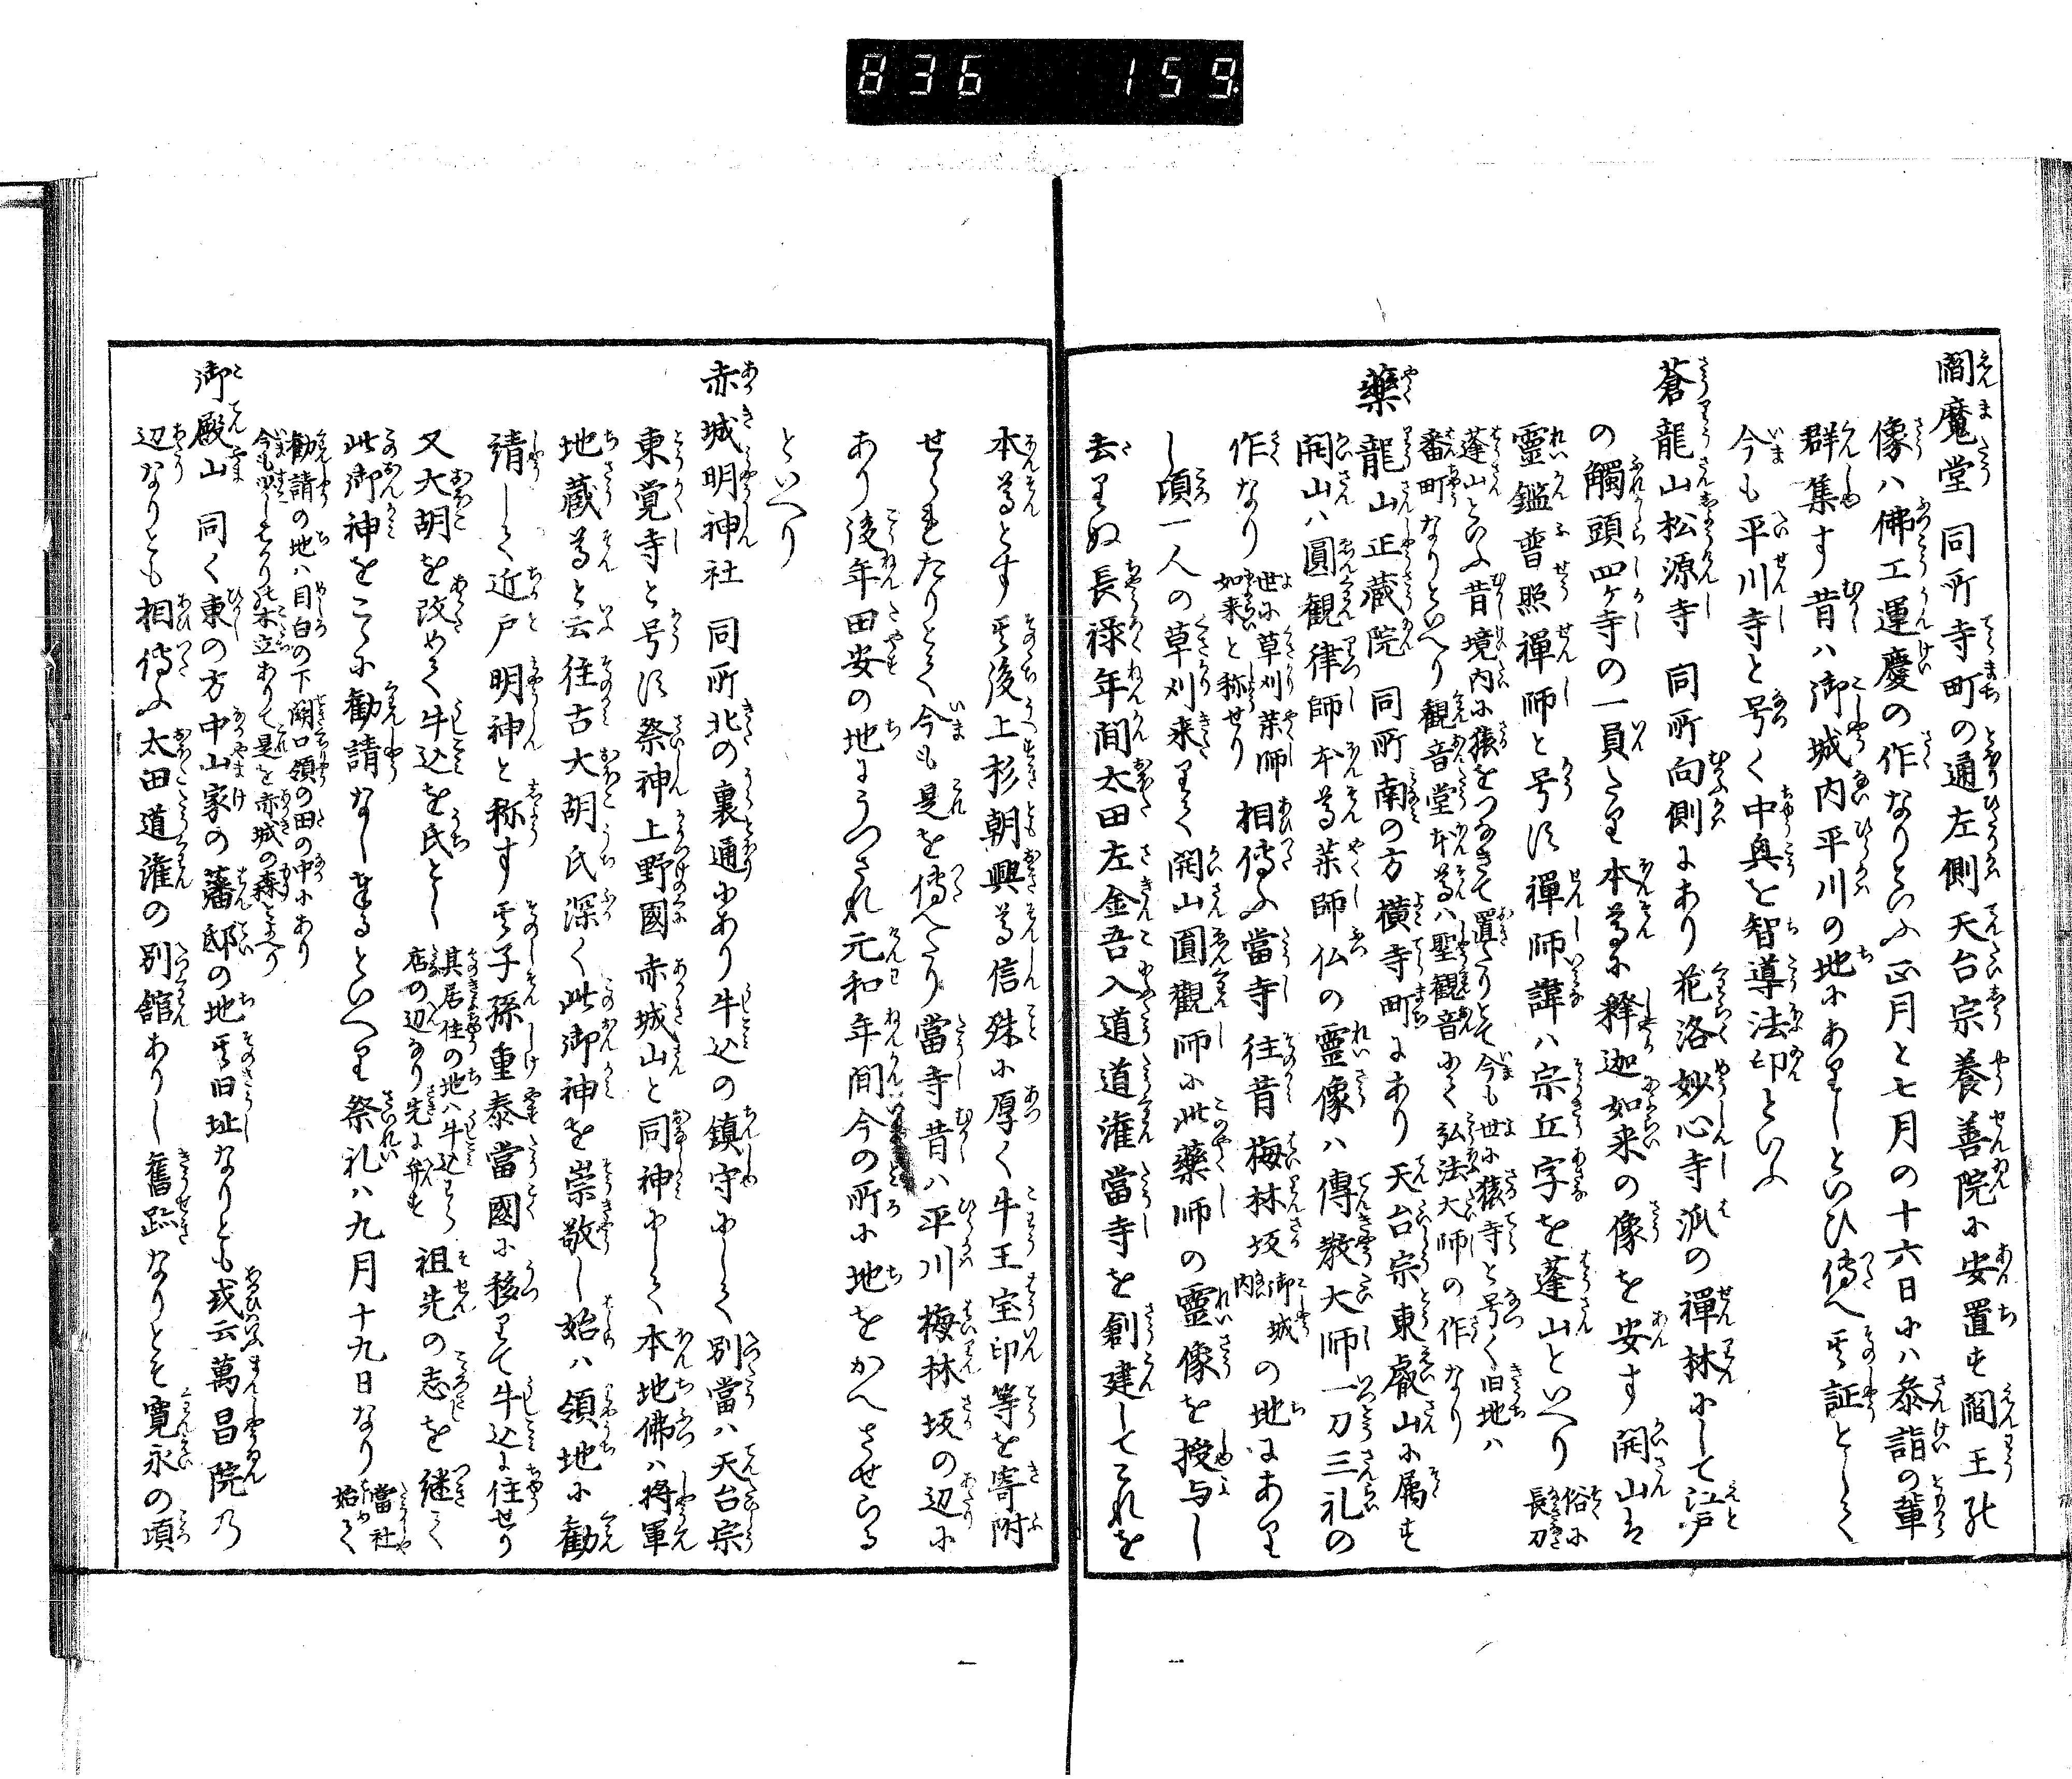 836 159
閻魔堂 同所寺町の通左側天台宗養善院に安置す閻王の
像ハ佛工運慶の作なりといふ正月と七月の十六日にハ参詣の輩
群集す昔ハ御城内平川の地にありしといひ傳へ其証として
今も平川寺と号く中興を智導法印といふ
蒼龍山松源寺 同所向側にあり花洛妙心寺派の禅林にして江戸
の觸頭四ケ寺の一員たり本尊に釋迦如来の像を安す開山を
靈鑑普照禪師と号す禪師諱ハ宗丘字を蓬山といへり 俗に長刀
蓬山といふ昔境内に猿をつなきて置たりとて今も世に猿寺と号く旧地ハ
番町なりといへり観音堂本尊ハ聖観音にて弘法大師の作なり
藥龍山正藏院 同所南の方横寺町にあり天台宗東叡山に属す
開山ハ圓観律師本尊薬師仏の靈像ハ傳教大師一刀三礼の
作なり 世に草刈薬師如来と称せり 相傳ふ當寺往昔梅林坂 御城内 の地にあり
し頃一人の草刈来りて開山圓觀師に此藥師の靈像を授与し
去りぬ長禄年間太田左金吾入道道潅當寺を創建してこれを
本尊とす其後上杉朝興尊信殊に厚く牛王宝印等を寄附
せられたりとて今も是を傳へたり當寺昔ハ平川梅林坂の辺に
あり後年田安の地にうつされ元和年間今の所に地をかへさせらる
といへり
赤城明神社 同所北の裏通にあり牛込の鎮守にして別當ハ天台宗
東覚寺と号す祭神上野國赤城山と同神にして本地佛ハ将軍
地蔵尊と云往古大胡氏深く此御神を崇敬し始ハ領地に勧
請して近戸明神と称す其子孫重泰當國に移りて牛込に住せり
又大胡を改めて牛込を氏とし 其居住の地ハ牛込わら店の辺なり先に弁す 祖先の志を継て
此御神をこゝに勧請なし奉るといへり祭礼ハ九月十九日なり 當社始て
勧請の地ハ目白の下関口領の田の中にあり
今も少しそり木立ありて是を赤城の森とよへり
御殿山 同く東の方中山家の藩邸の地其旧址なりとも或云萬昌院乃
辺なりとも相傳ふ太田道潅の別舘ありし舊跡なりとそ寛永の頃